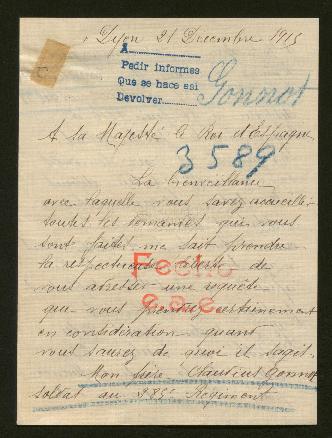 Dijon 21 Décembre 1915
A
Pedir informes
Que se hace asi
Devolver
Gonnot
A la Majesté le Roi d'Espagne
3589
La bienveillance
avec laquelle vous savez accueillir
toutes les demandes qui vous
sont faites me fait prendre
la respectueuse liberté de
Fecho
vous adresser une requête
e.a.e.
que vous prendrez certainement
en considération quant
vous saurez de quoi il s'agit.
Mon frère Claudius Gonnot
soldat au 385e Régiment